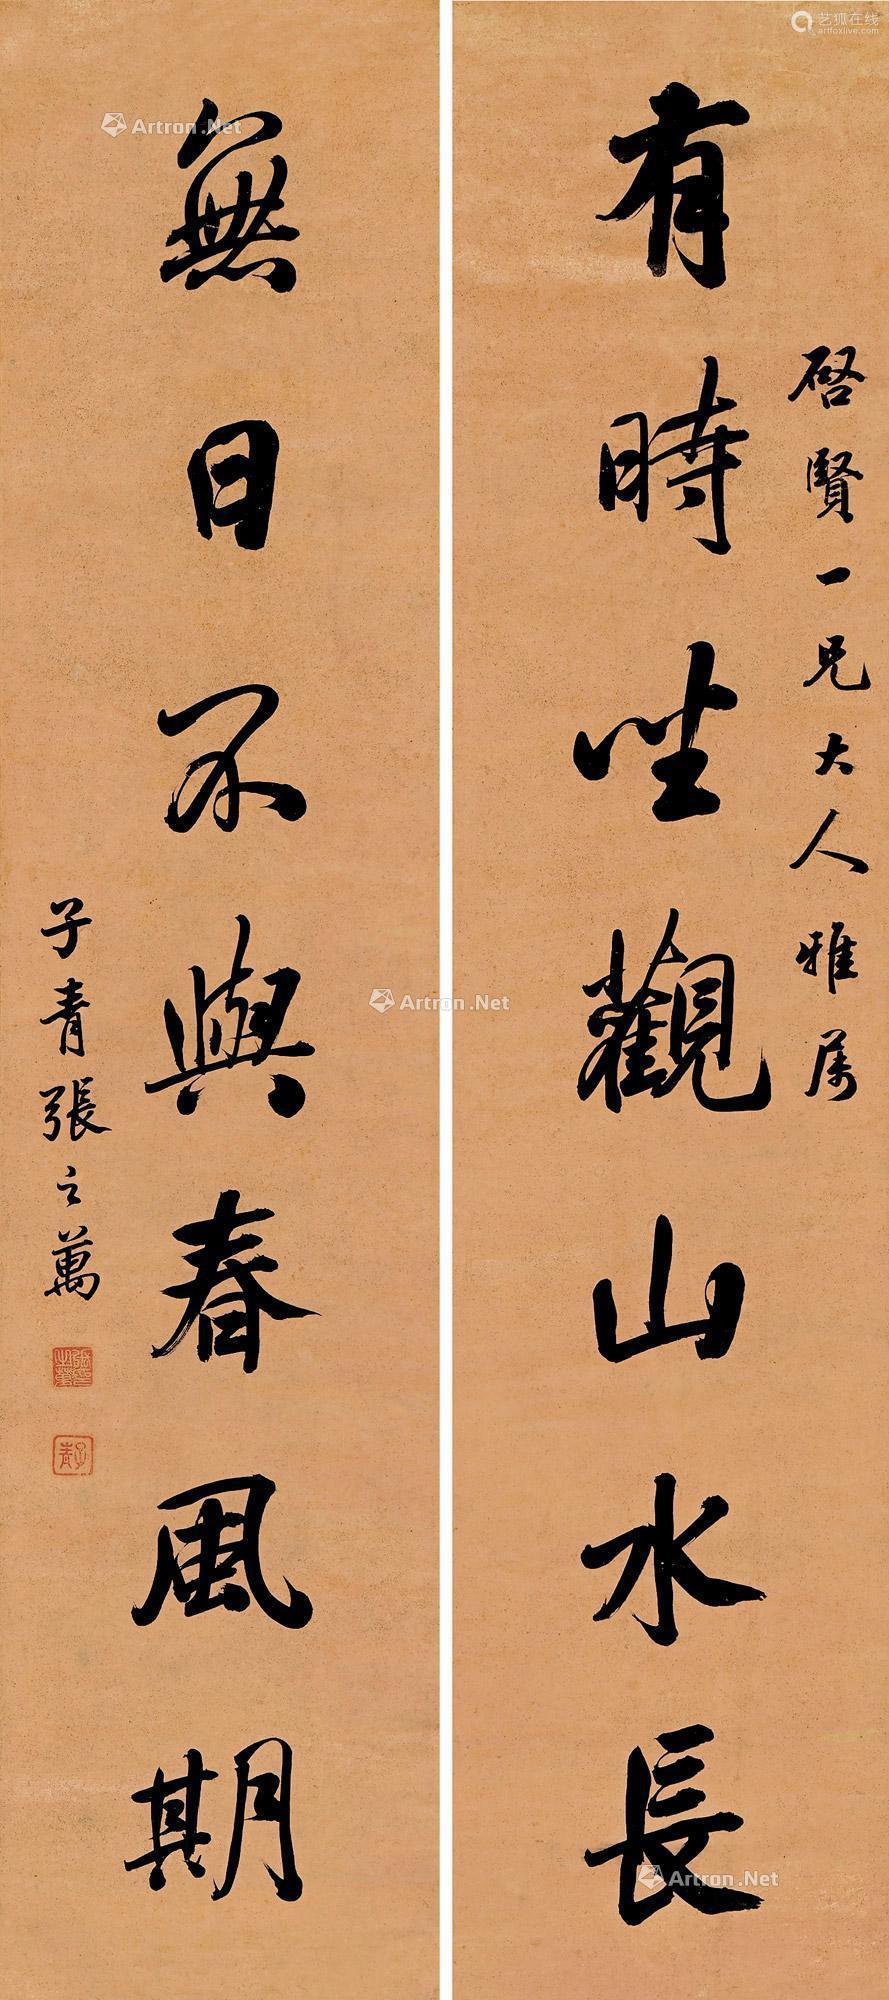 有時坐觀山水長
啓賢一兄大人雅属
無日不與春風期
子青張之萬
張之萬印
子青
艺狐在线
artfoxlive.com
Artron.Net
Artron.Net
Artron.Net